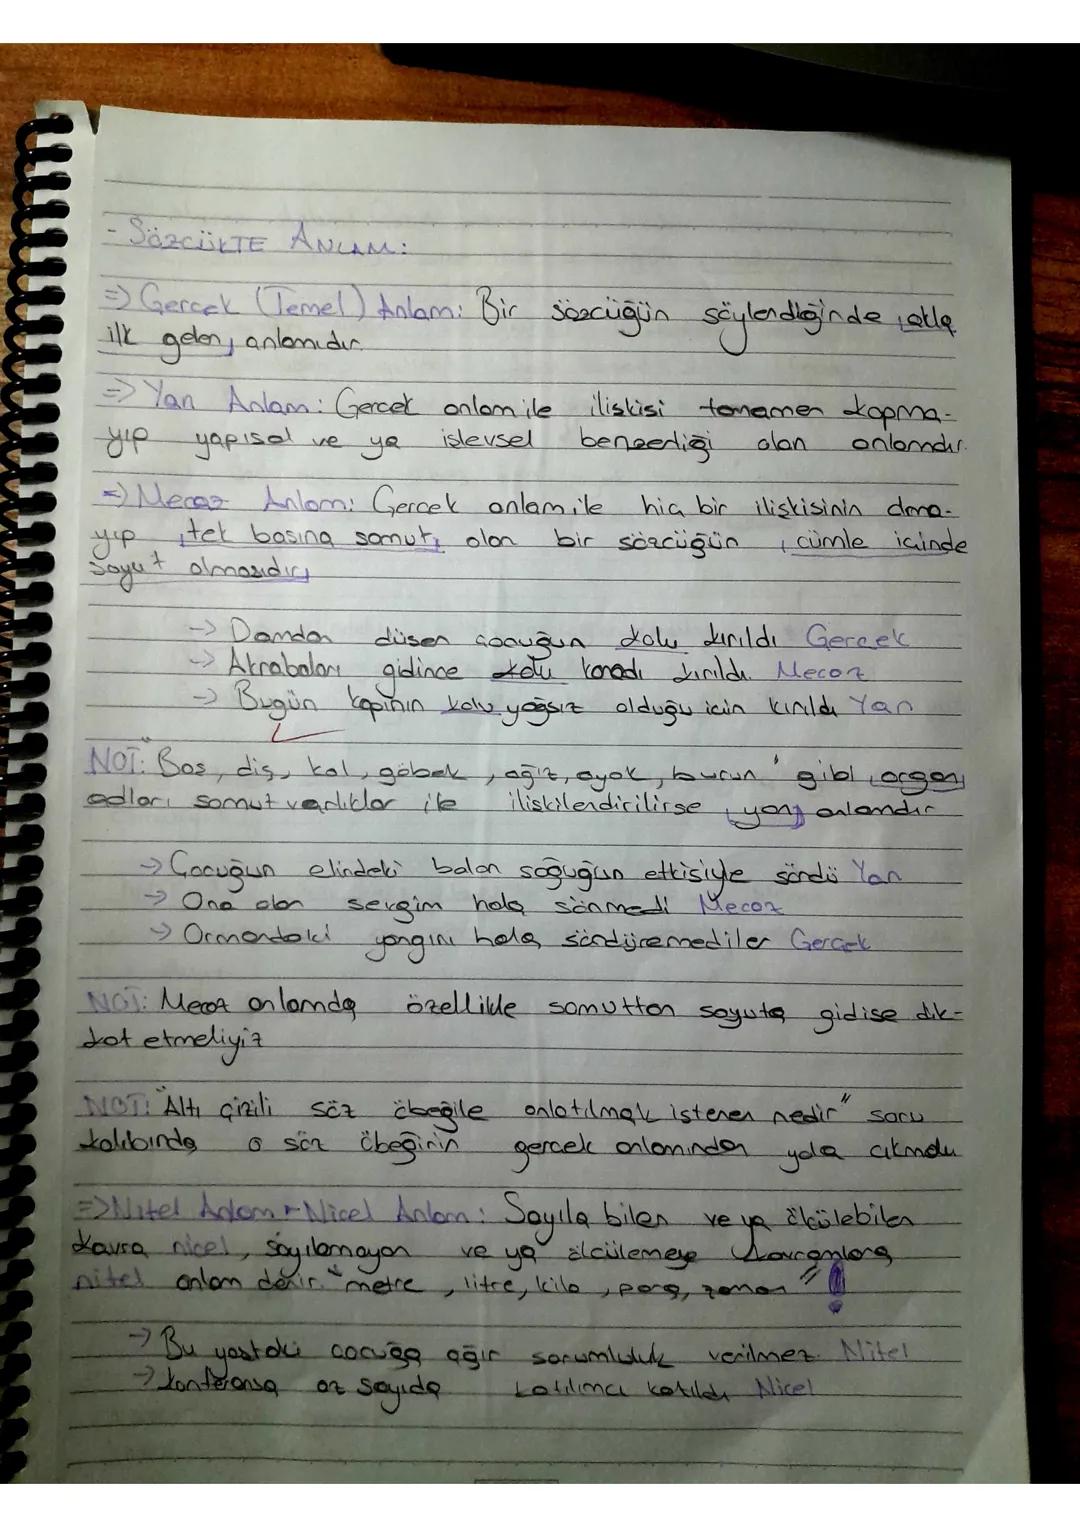 - SÖZCÜKTE ANLAM:
=> Gercek (Temel) Anlam: Bir sözcüğün söylendiğinde, akla
ilk gelen, anlamıdır.
=> Yan Anlam: Gercek anlam ile iliskisi tamamen kopma-
yıp yapısal ve ya islevsel benzediği olan anlamdır.
=> Mecaz Anlam: Gercek anlam ile hic bir iliskisinin olma-
yıp, tek basına somut, olan bir sözcüğün, cümle icinde
soyut olmasıdır,
-> Damdan düsen cocuğun kolu kırıldı Gercek
-> Akrabaları gidince kolu kanadı kırıldı. Mecaz
-> Bugün kapının kolu yağsız olduğu icin kırıldı Yan
NOT: "Bas, dis, kol, göbek, ağız, ayak, burun" gibi, organ,
adları somut varlıklar ile iliskilendirilirse, yan, anlamdır
-> Cocuğun elindeki balon soğuğun etkisiyle söndü Yan
-> Ona olan sevgim hala sönmedi Mecaz
-> Ormandaki yangını hala söndüremediler Gercek
NOT: Mecaz anlamda özellikle somuttan soyuta gidise dik-
kat etmeliyiz
NOT: "Altı çizili söz öbeğile anlatılmak istenen nedir" soru
kalıbında o söz öbeğinin gercek anlamından yola cıkmalı
=> Nitel Anlam - Nicel Anlam: Sayıla bilen ve ya ölcülebilen
kavra nicel, sayılamayan ve ya ölcülemeye kavramlara
nitel anlam denir. "metre, litre, kilo, para, zaman" !
-> Bu yastaki cocuğa ağır sorumluluk verilmez. Nitel
-> Konferansa az sayıda katılımcı katıldı Nicel